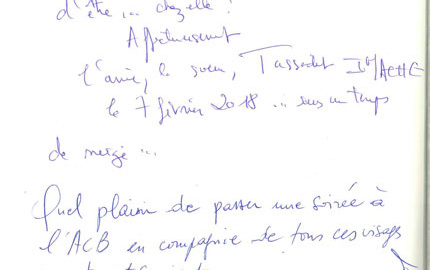 d'être ... chez elle !
Affectueusement
l'amie, la soeur, Tassadit
le 7 février 2018 ... sous un temps
de neige ...
Quel plaisir de passer une soirée à
l'ACB en compagnie de tous ces visages